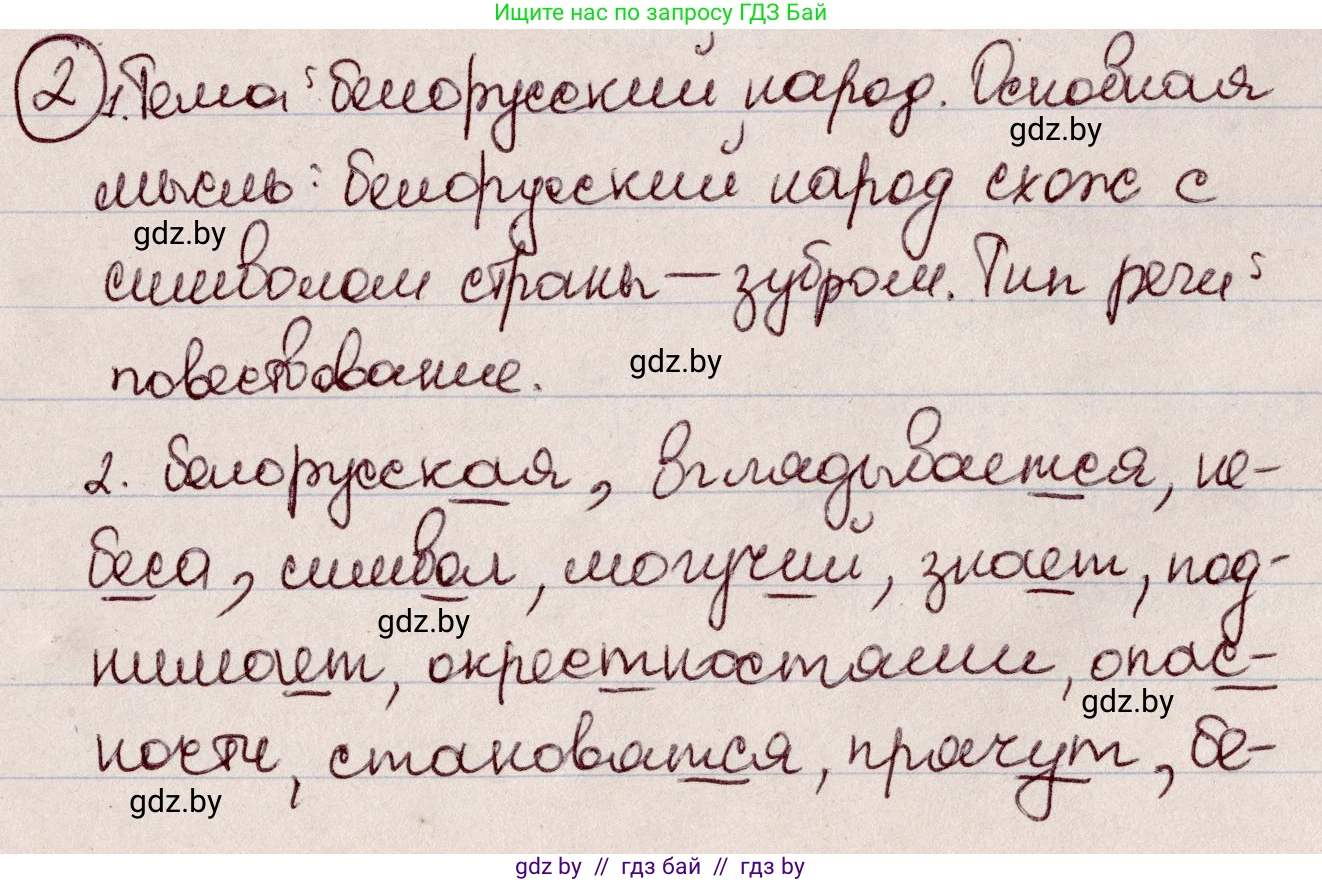 Ищите нас по запросу ГДЗ Бай
2 1. Тема: белорусский народ. Основная
gdz.by
мысль: белорусский народ схож с
gdz.by
символом страны — зубром. Тип речи:
повествование.
gdz.by
2. белорусская, вглядывается, не-
беса, символ, могучий, знает, под-
gdz.by
нимает, окрестностями, опас-
gdz.by
ности, становятся, прячут, бе-
gdz.by
gdz by // гдз бай // гдз by